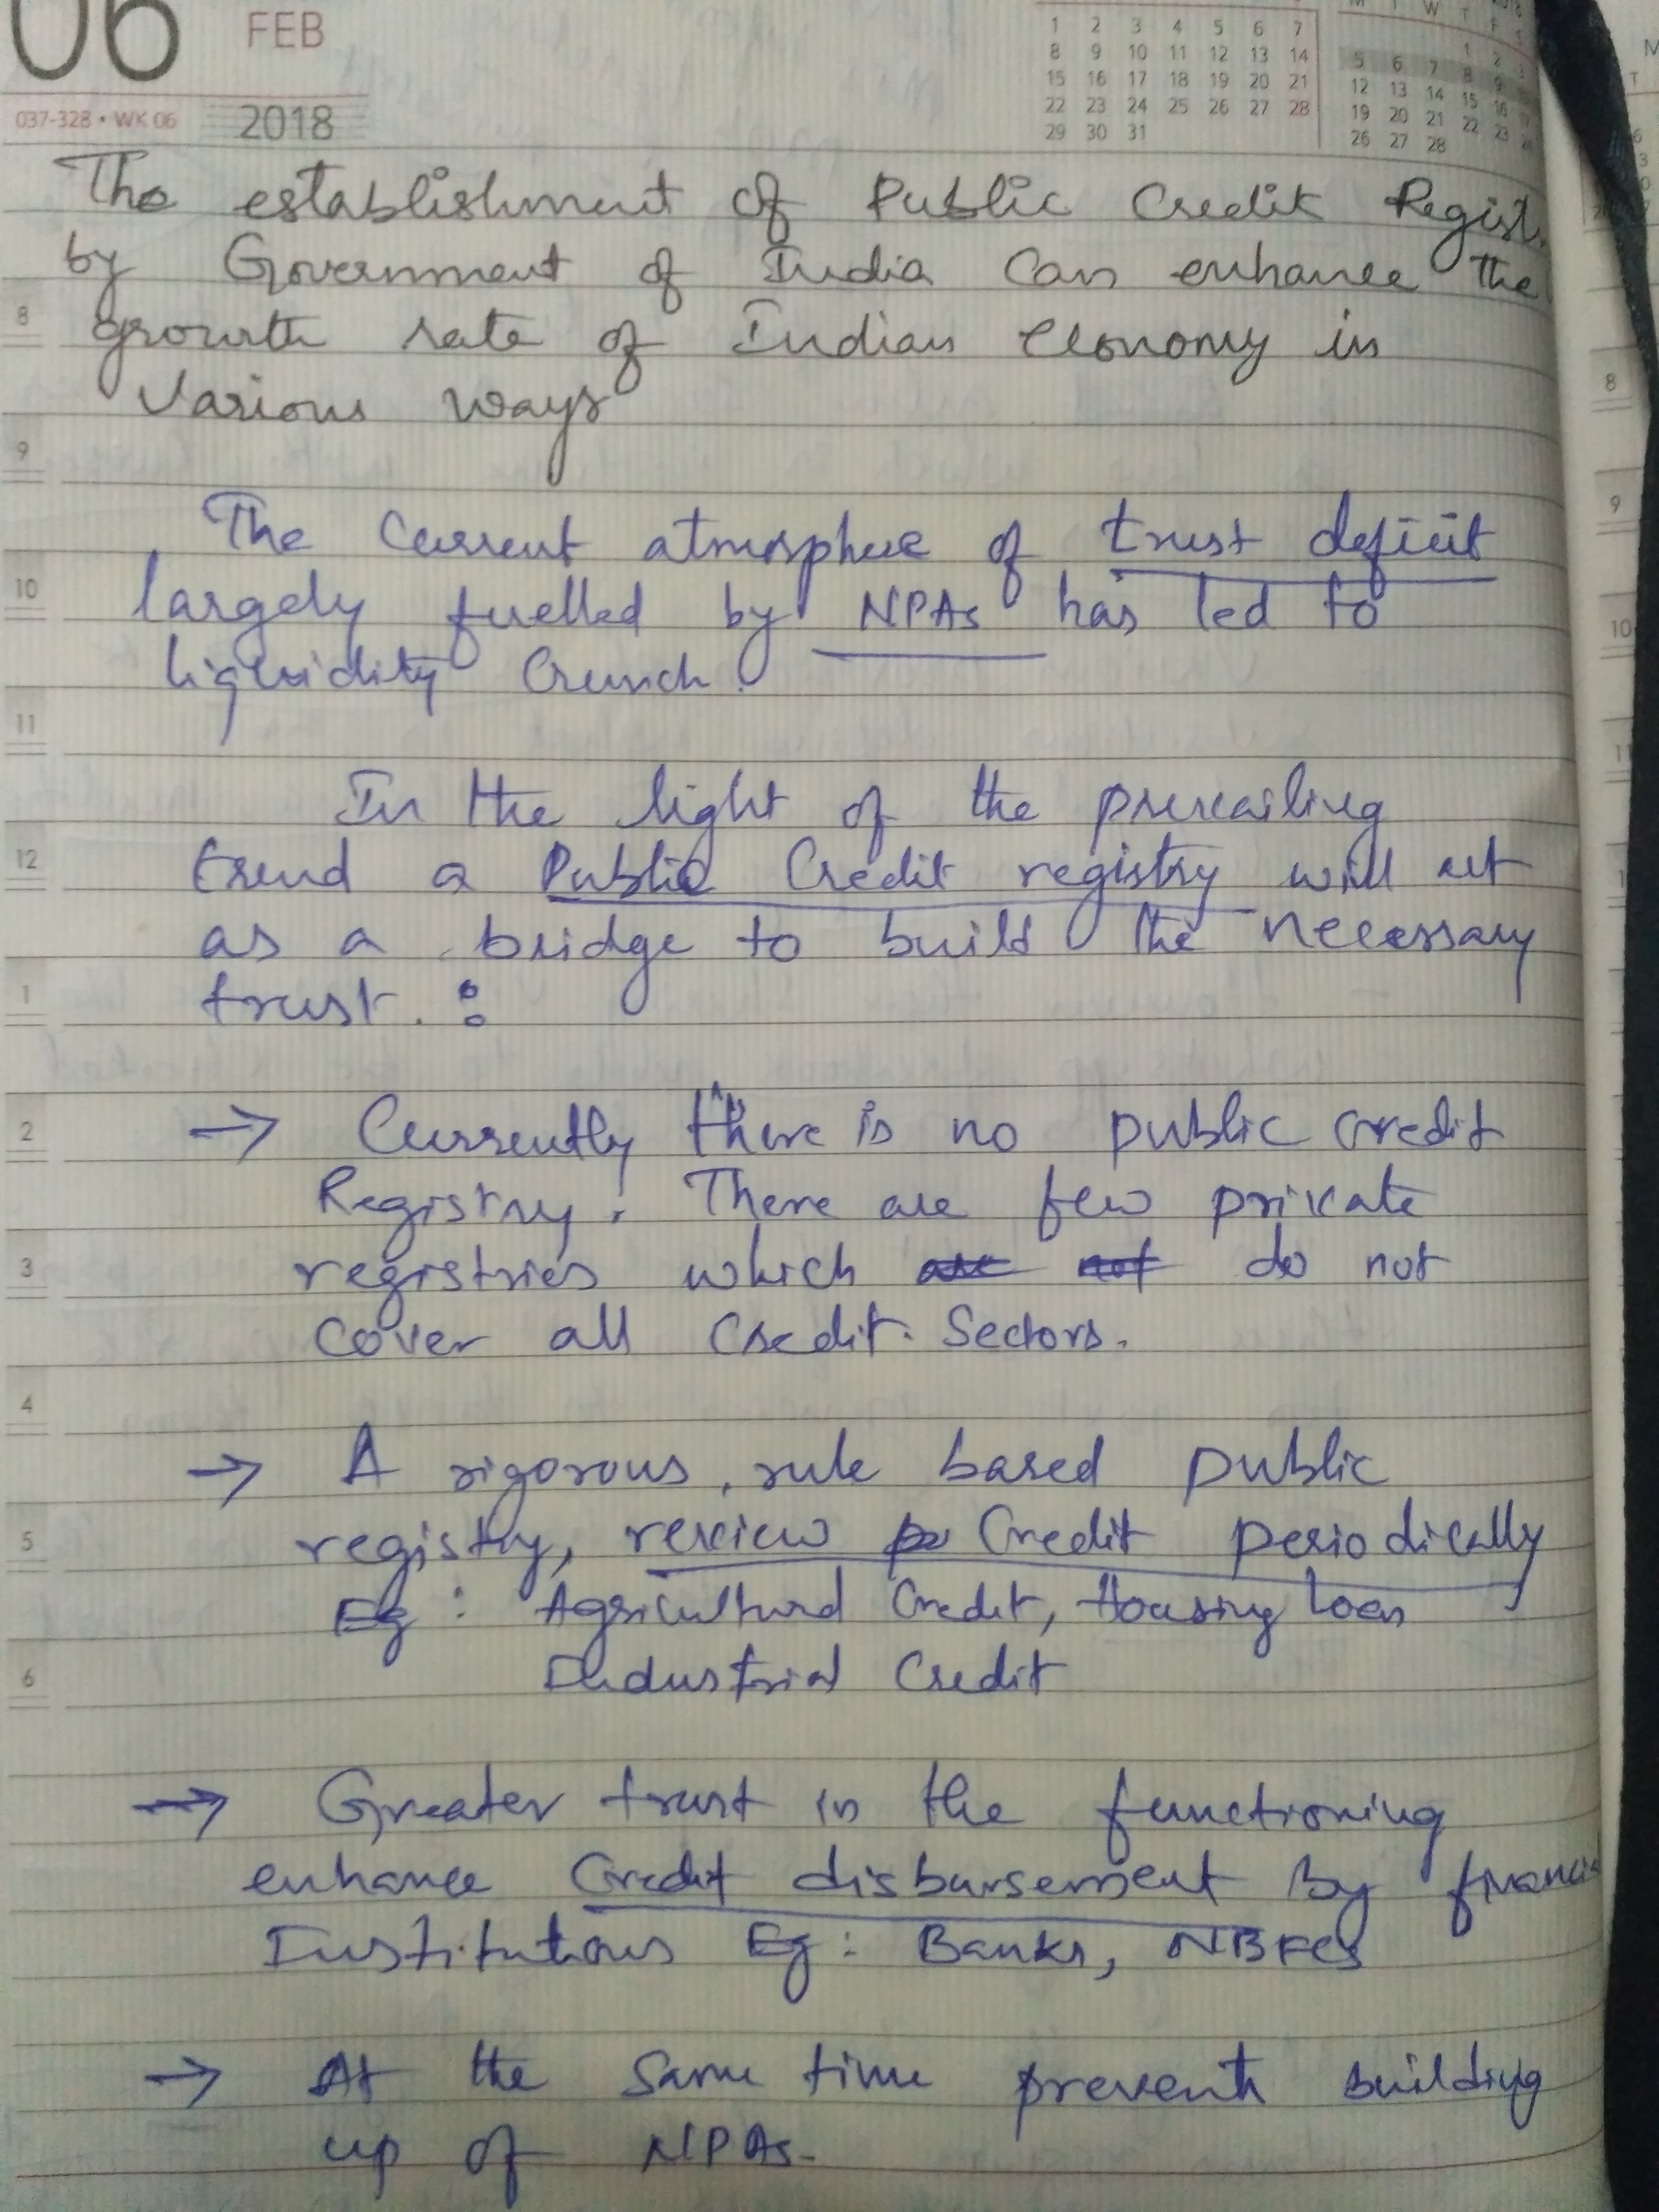 06 FEB
037-328 • WK 06 2018
1 2 3 4 5 6 7
8 9 10 11 12 13 14
15 16 17 18 19 20 21
22 23 24 25 26 27 28
29 30 31
M T W T F
1 2 3
5 6 7 8 9
12 13 14 15 16
19 20 21 22 23
26 27 28
The establishment of Public Credit Regist
by Government of India can enhance the
8 growth rate of Indian economy in
various ways
9
The current atmosphere of trust deficit
10 largely fuelled by NPAs has led to
liquidity crunch.
11
In the light of the prevailing
12 trend a Public Credit registry will act
as a bridge to build the necessary
1 trust. :
2 → Currently there is no public credit
Registry. There are few private
3 registries which are not do not
cover all credit sectors.
4
→ A rigorous, rule based public
5 registry, review Credit periodically
Eg : Agricultural Credit, Housing loan
6 Industrial Credit
→ Greater trust in the functioning
enhance Credit disbursement By financi
Institutions Eg : Banks, NBFCs
→ At the same time prevent building
up of NPAs.